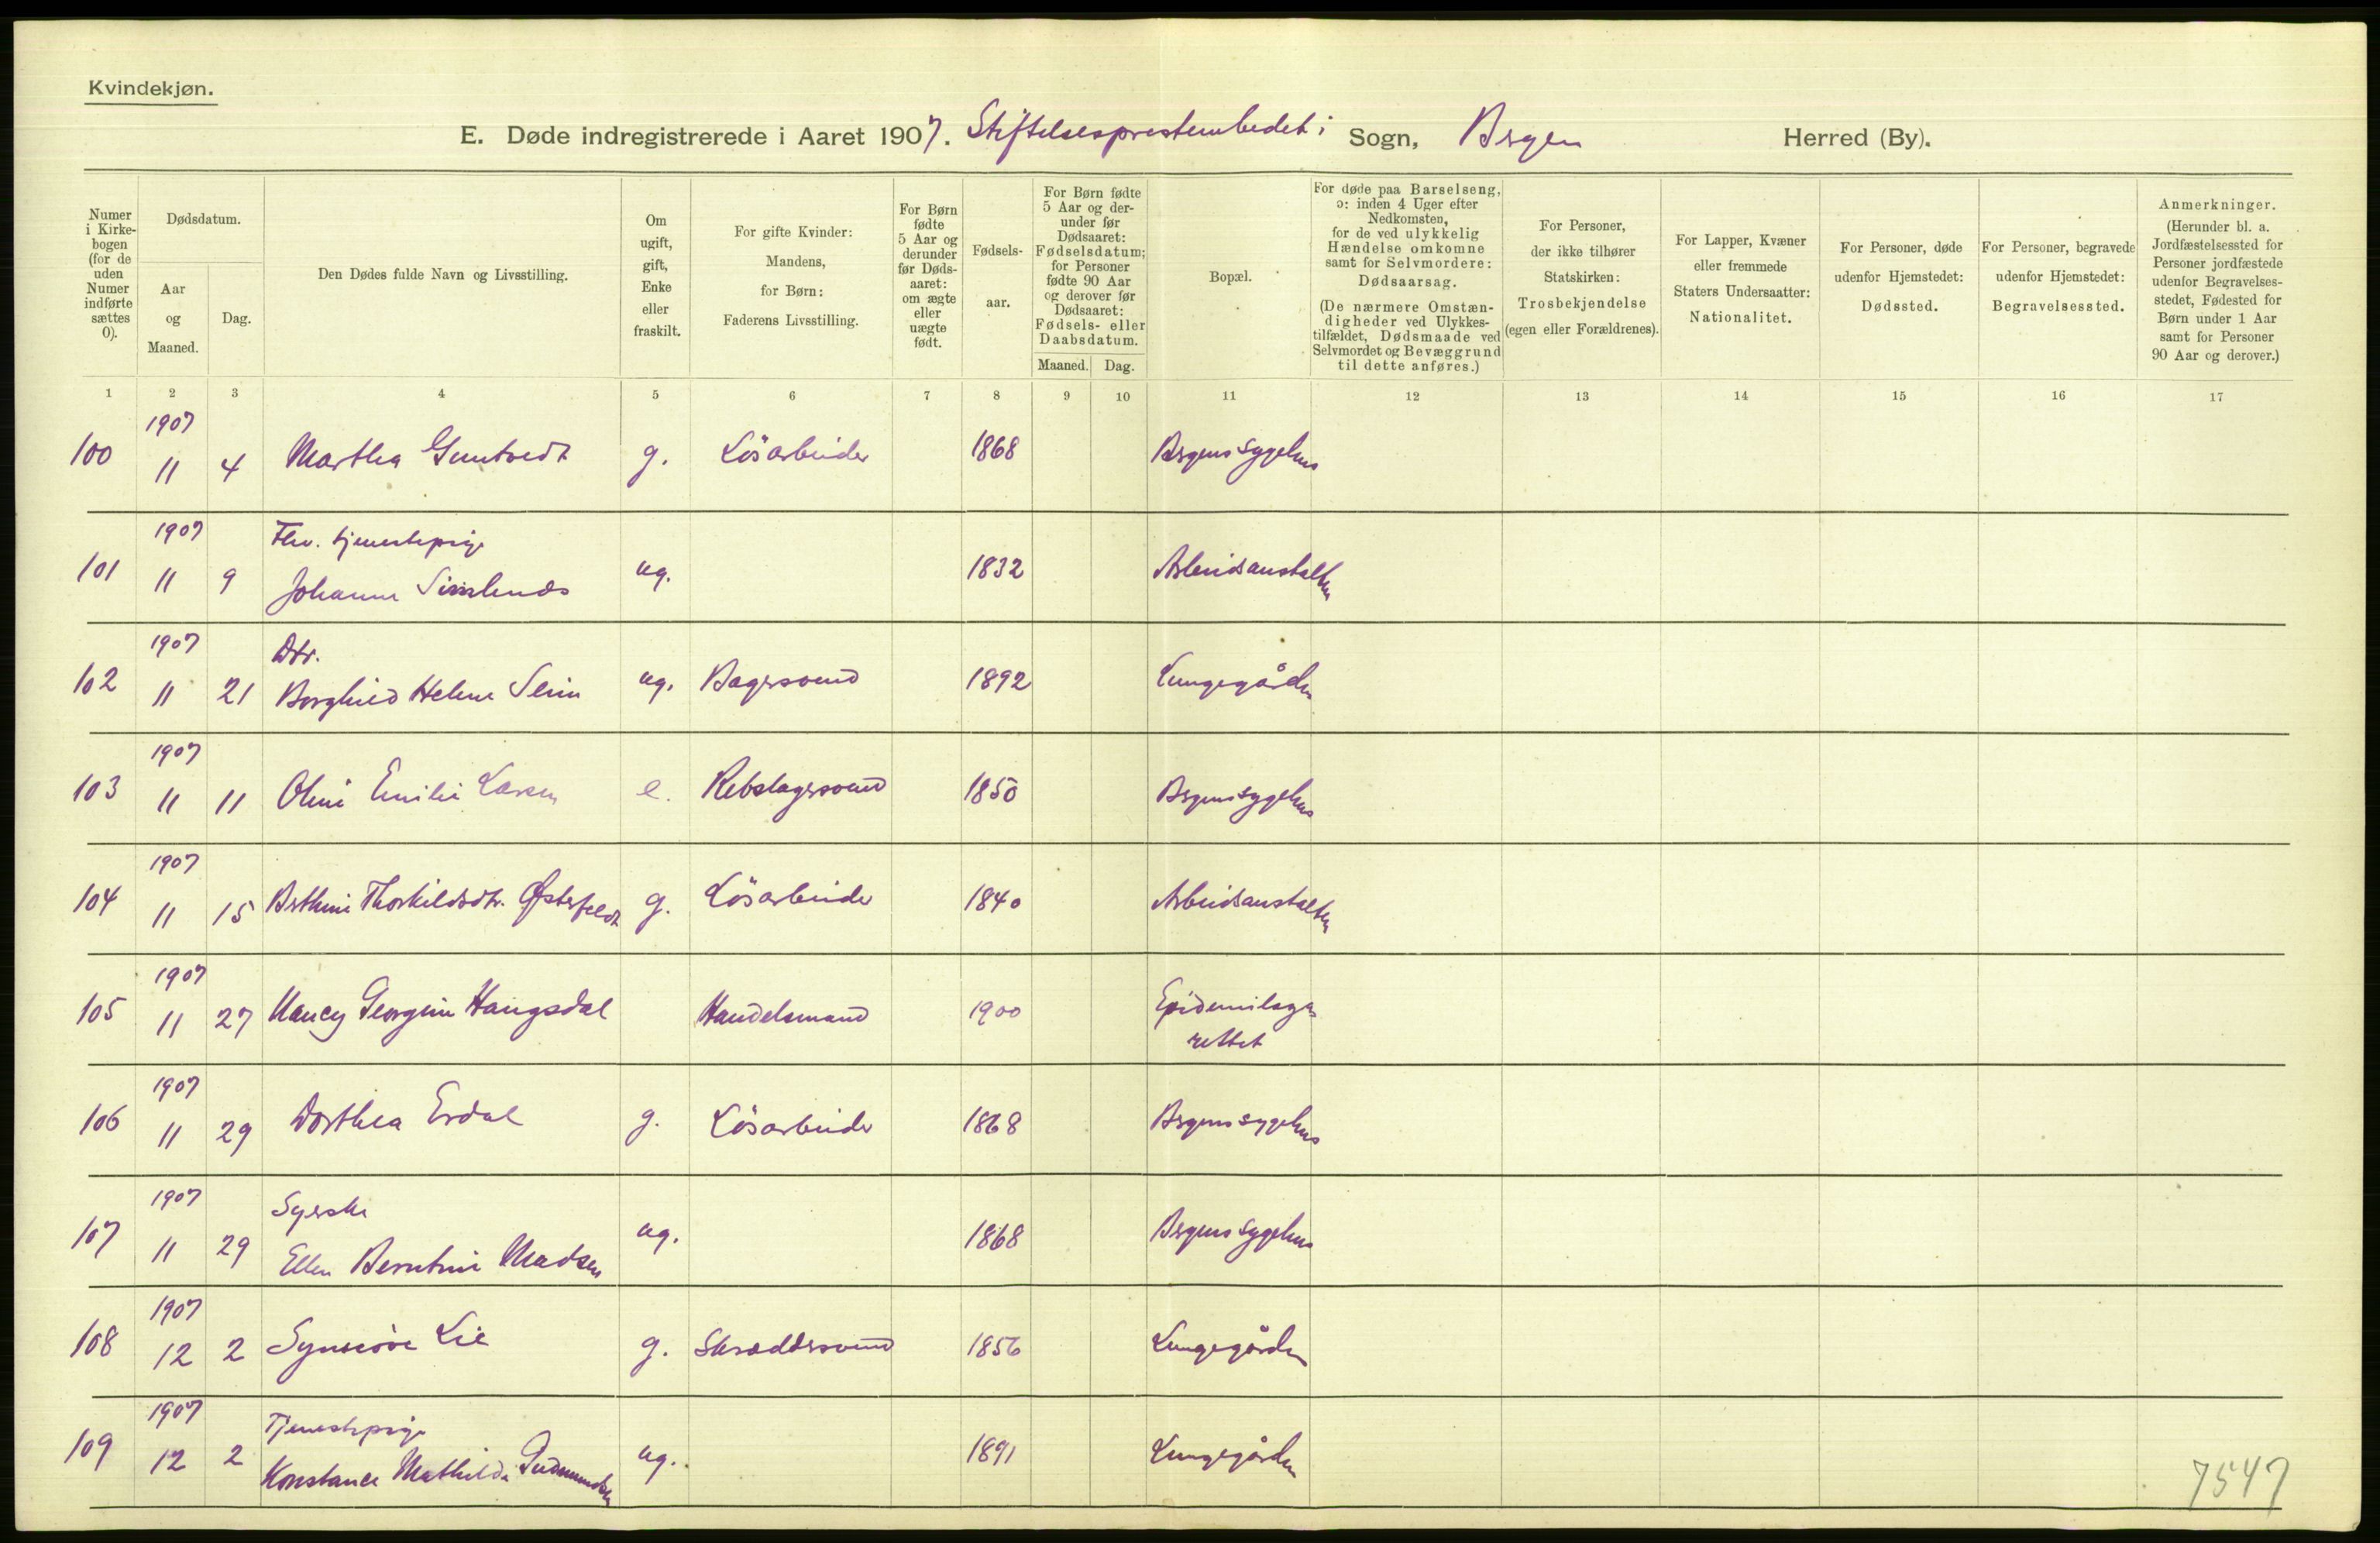 Kvindekjøn.
E. Døde indregistrerede i Aaret 1907. Stiftelsesprestembedet i Sogn, Bergen Herred (By).
Numer i Kirkebogen (for de uden Numer indførte sættes 0).
Dødsdatum.
Aar og Maaned.
Dag.
Den Dødes fulde Navn og Livsstilling.
Om ugift, gift, Enke eller fraskilt.
For gifte Kvinder: Mandens, for Børn: Faderens Livsstilling.
For Børn fødte 5 Aar og derunder før Dødsaaret: om ægte eller uægte født.
Fødselsaar.
For Børn fødte 5 Aar og derunder før Dødsaaret: Fødselsdatum; for Personer fødte 90 Aar og derover før Dødsaaret: Fødsels- eller Daabsdatum.
Maaned. Dag.
Bopæl.
For døde paa Barselseng, ɔ: inden 4 Uger efter Nedkomsten, for de ved ulykkelig Hændelse omkomne samt for Selvmordere: Dødsaarsag. (De nærmere Omstændigheder ved Ulykkestilfældet, Dødsmaade ved Selvmordet og Bevæggrund til dette anføres.)
For Personer, der ikke tilhører Statskirken: Trosbekjendelse (egen eller Forældrenes).
For Lapper, Kvæner eller fremmede Staters Undersaatter: Nationalitet.
For Personer, døde udenfor Hjemstedet: Dødssted.
For Personer, begravede udenfor Hjemstedet: Begravelsessted.
Anmerkninger. (Herunder bl. a. Jordfæstelsessted for Personer jordfæstede udenfor Begravelsesstedet, Fødested for Børn under 1 Aar samt for Personer 90 Aar og derover.)
1 2 3 4 5 6 7 8 9 10 11 12 13 14 15 16 17
1907
100 11 4 Marthea Gumtvedt g. Løsarbeider 1868 Bergens sygehus
1907 Fhv. tjenestepige
101 11 9 Johanne ug. 1832 Arbeidsanstalten
1907 Dtr.
102 11 21 Borghild Helene ug. Bagersvend 1892 Lungegården
1907
103 11 11 Oline Emilie Larsen e. Rebslagersvend 1850 Bergens sygehus
1907
104 11 15 Berthine Thorkildsdtr. Østerfeldt g. Løsarbeider 1840 Arbeidsanstalten
1907
105 11 27 Nancy Georgine Haugsdal Handelsmand 1900 Epidemilaza
rettet
1907
106 11 29 Dorthea Erdal g. Løsarbeider 1868 Bergens sygehus
1907 Syerske
107 11 29 Ellen Berntine Madsen ug. 1868 Bergens sygehus
1907
108 12 2 Synneöve Lie g. Skreddersvend 1856 Lungegården
1907 Tjenestepige
109 12 2 Konstance Mathilde Gudmundsen ug. 1891 Lungegården
7547